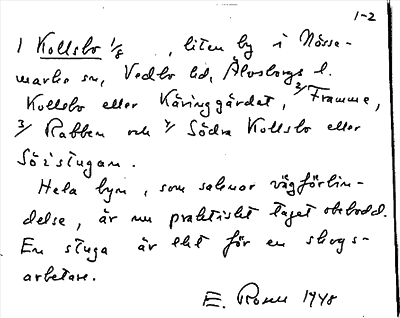 1-2
1 Kollsbo 1/8 , liten by i Nösse-
marks sn, Vedbo hd, Älvsborgs l.
Kollsbo eller Käringgärdet, 2/ Framme,
3/ Rabben och 4/ Södra Kollsbo eller
Söistugan.
Hela byn, som saknar vägförbin-
delse, är nu praktiskt taget obebodd.
En stuga är ekt för en skogs-
arbetare.
E. Rosell 1948